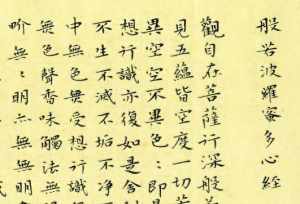 般若波羅蜜多心經
觀自在菩薩行深般若
見五蘊皆空度一切苦
異空空不異色〻即是
想行識亦復如是舍利
不生不滅不垢不净
中無色無受想行識
無色聲香味觸法無
畍無〻明亦無無明